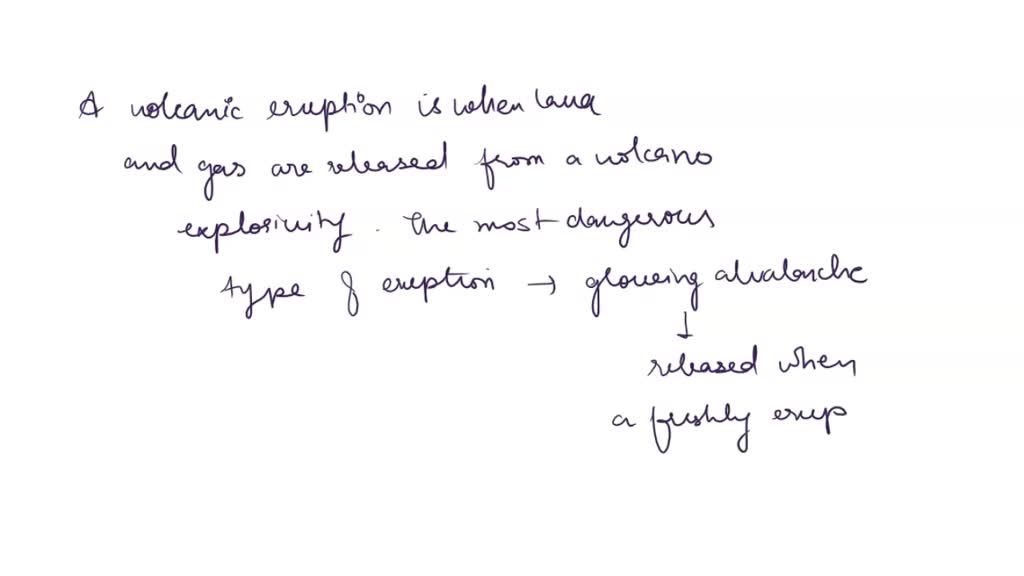 A volcanic eruption is when lava
and gas are released from a volcano
explosivity. The most dangerous
type of eruption → glowing alvalanche
↓
released when
a freshly erup